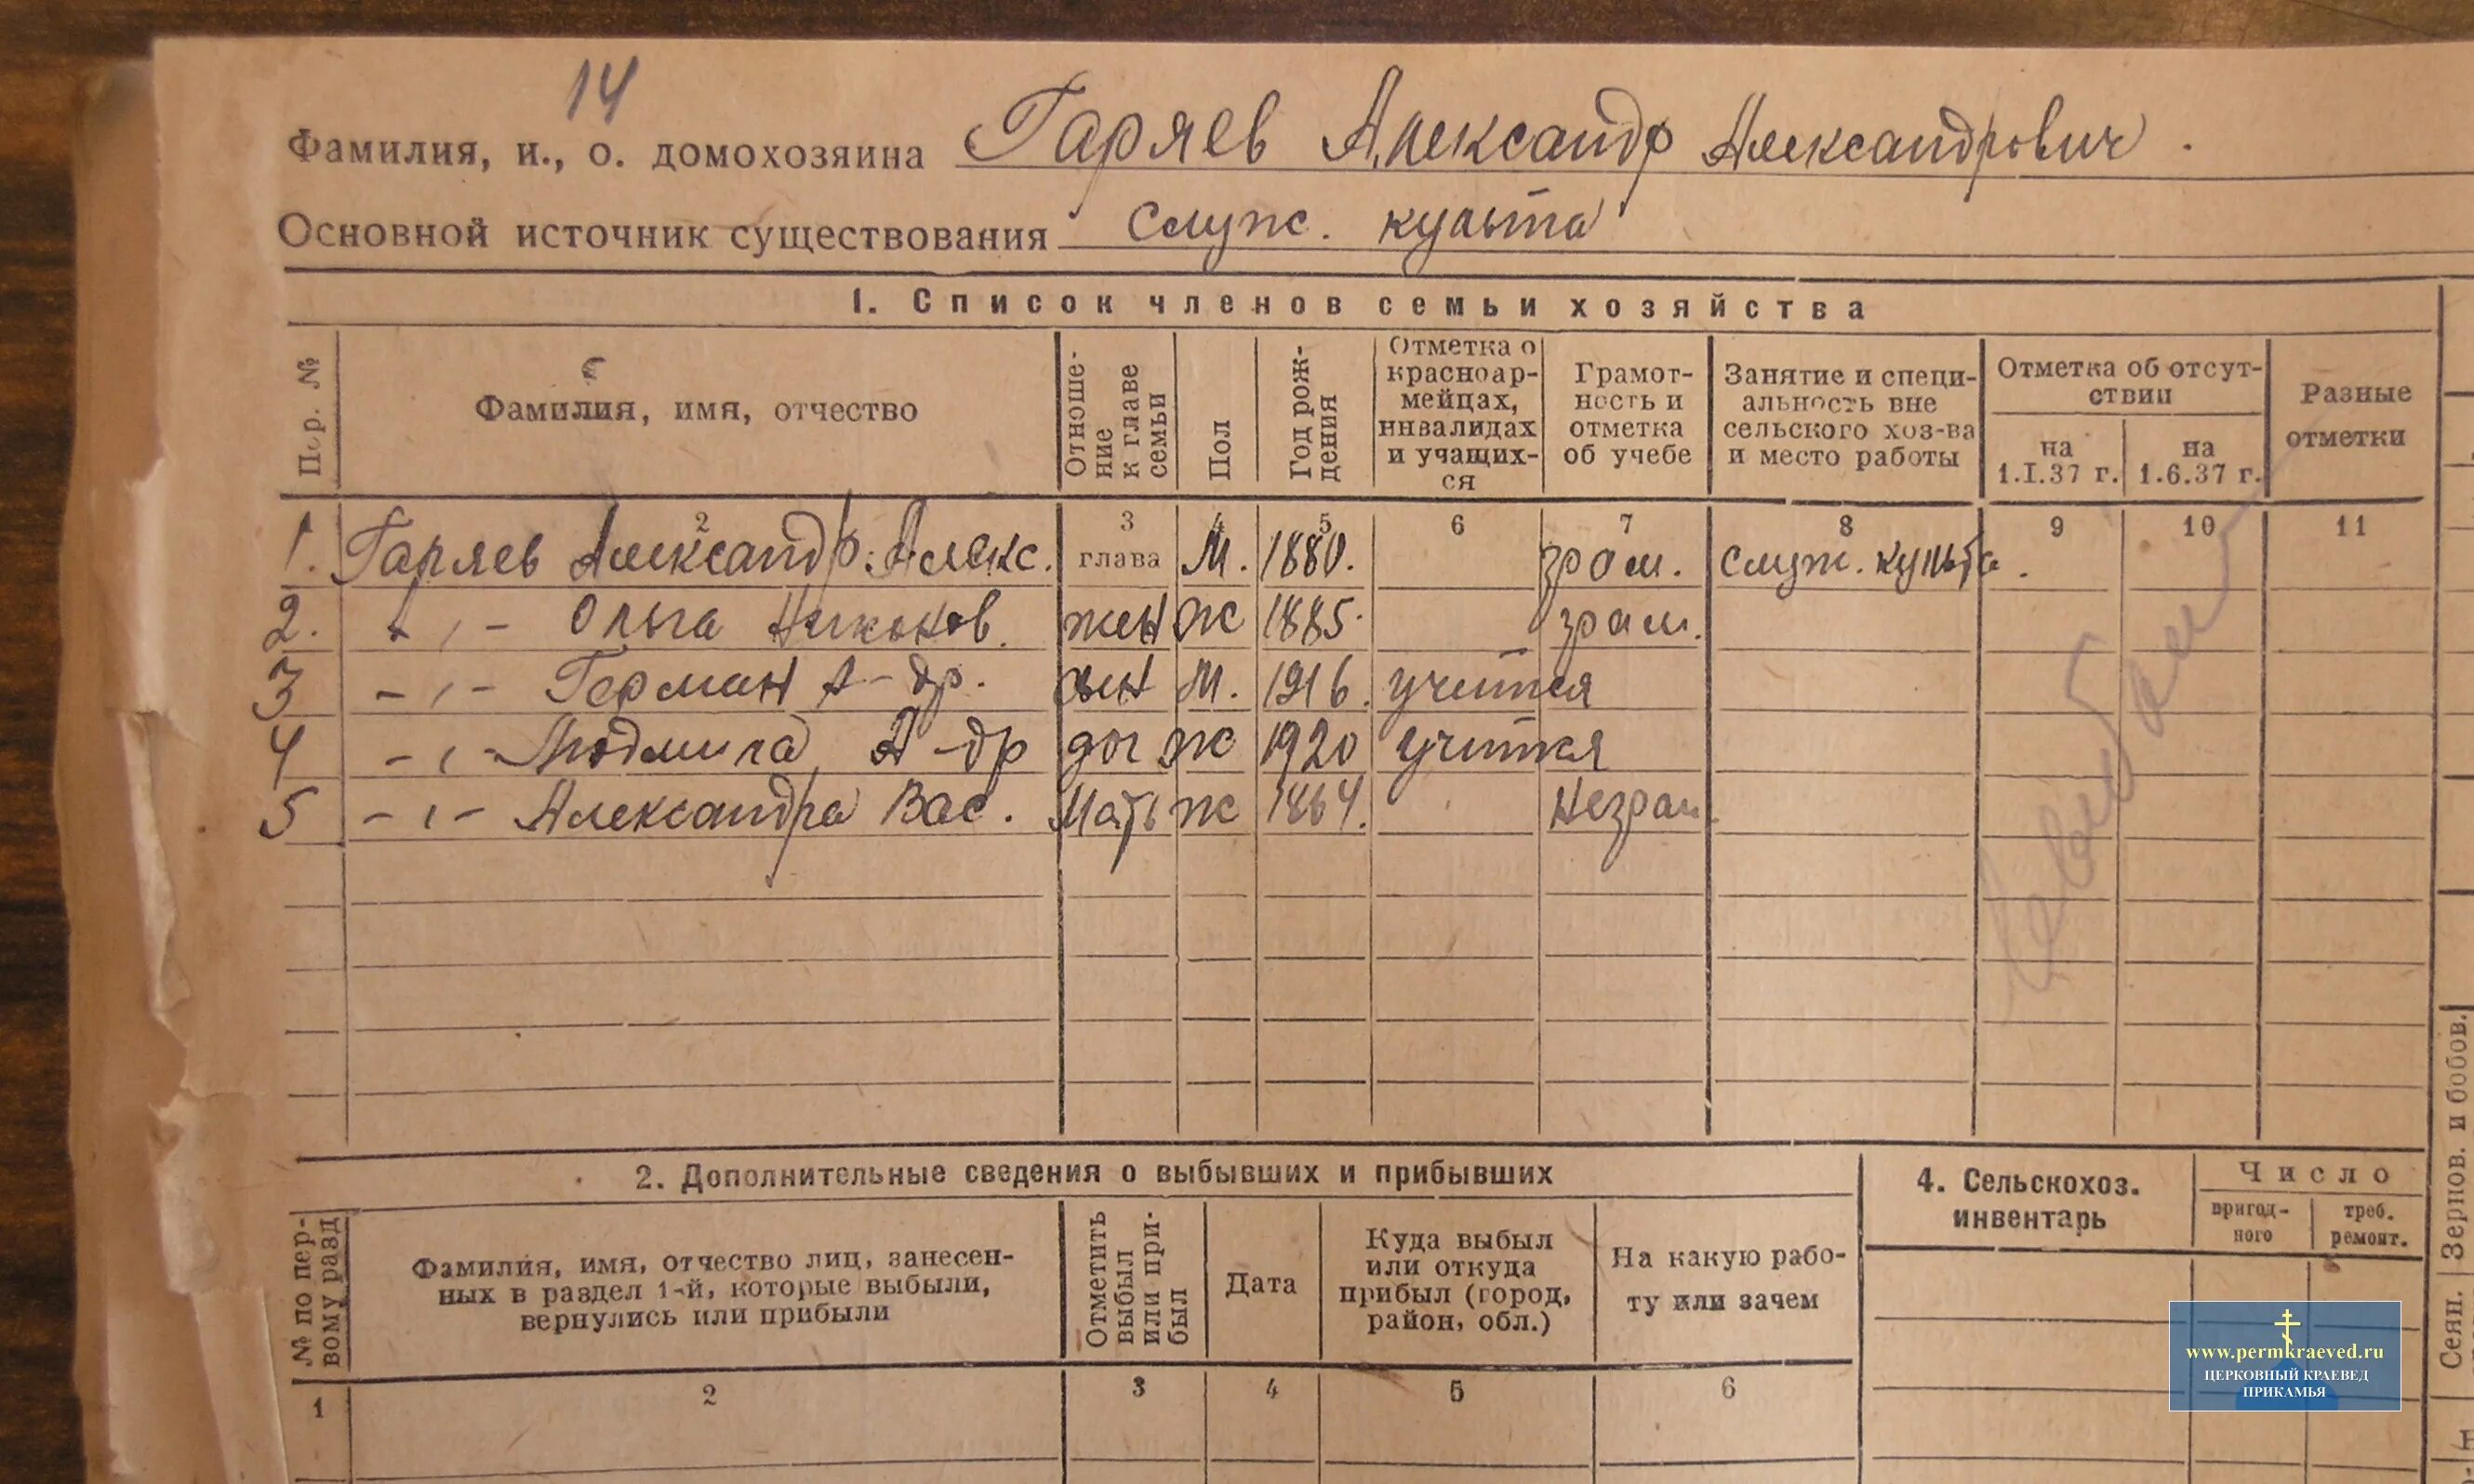 14
Фамилия, и., о. домохозяина Гаряев Александр Александрович.
Основной источник существования служ. культа
1. Список членов семьи хозяйства
Пор. №
Фамилия, имя, отчество
Отноше-
ние
к главе
семьи
Пол
Год рож-
дения
Отметка о
красноар-
мейцах,
инвалидах
и учащих-
ся
Грамот-
ность и
отметка
об учебе
Занятие и специ-
альность вне
сельского хоз-ва
и место работы
Отметка об отсут-
ствии
на
1.I.37 г.
на
1.6.37 г.
Разные
отметки
2 3 4 5 6 7 8 9 10 11
1. Гаряев Александр Алекс. глава М. 1880. грам. служ. культа.
2. - " - Ольга Никонов. жен ж 1885. грам.
3 - " - Герман А-др. сын М. 1916. учится
4 - " - Людмила А-др доч ж 1920 учится
5 - " - Александра Вас. Мать ж 1864. Неграм.
2. Дополнительные сведения о выбывших и прибывших
№ по пер-
вому разд
Фамилия, имя, отчество лиц, занесен-
ных в раздел 1-й, которые выбыли,
вернулись или прибыли
Отметить
выбыл
или при-
был
Дата
Куда выбыл
или откуда
прибыл (город,
район, обл.)
На какую рабо-
ту или зачем
1 2 3 4 5 6
4. Сельскохоз.
инвентарь
Число
пригод-
ного
треб.
ремонт.
Зернов. и бобов.
Сеян.
www.permkraeved.ru
ЦЕРКОВНЫЙ КРАЕВЕД
ПРИКАМЬЯ